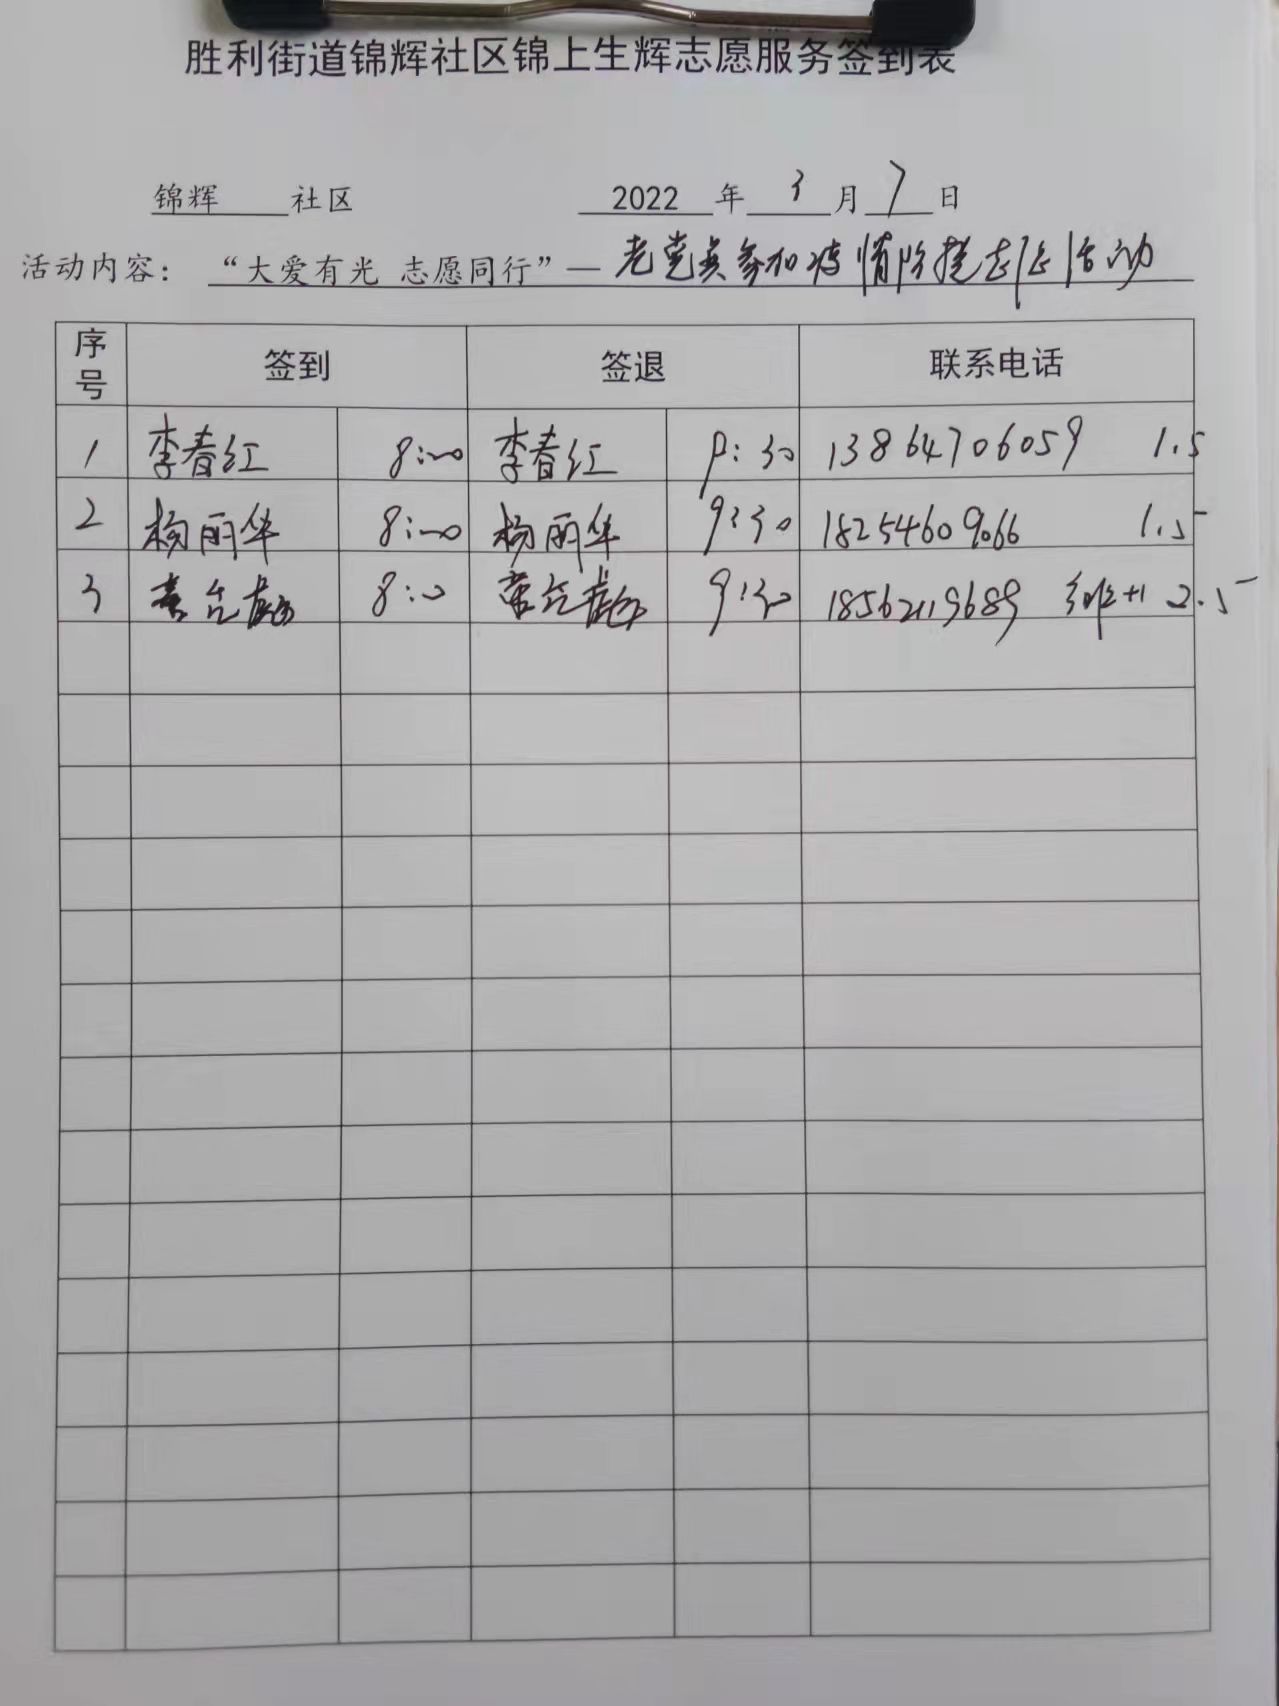 胜利街道锦辉社区锦上生辉志愿服务签到表
锦辉 社区 2022 年 3 月 7 日
活动内容：“大爱有光 志愿同行”—老党员参加疫情防控志愿活动
序号 签到 签退 联系电话
1 李春红 8:00 李春红 9:30 13864706059 1.5
2 杨丽华 8:00 杨丽华 9:30 18254609066 1.5
3 8:0 9:30 18562119689 +1 2.5